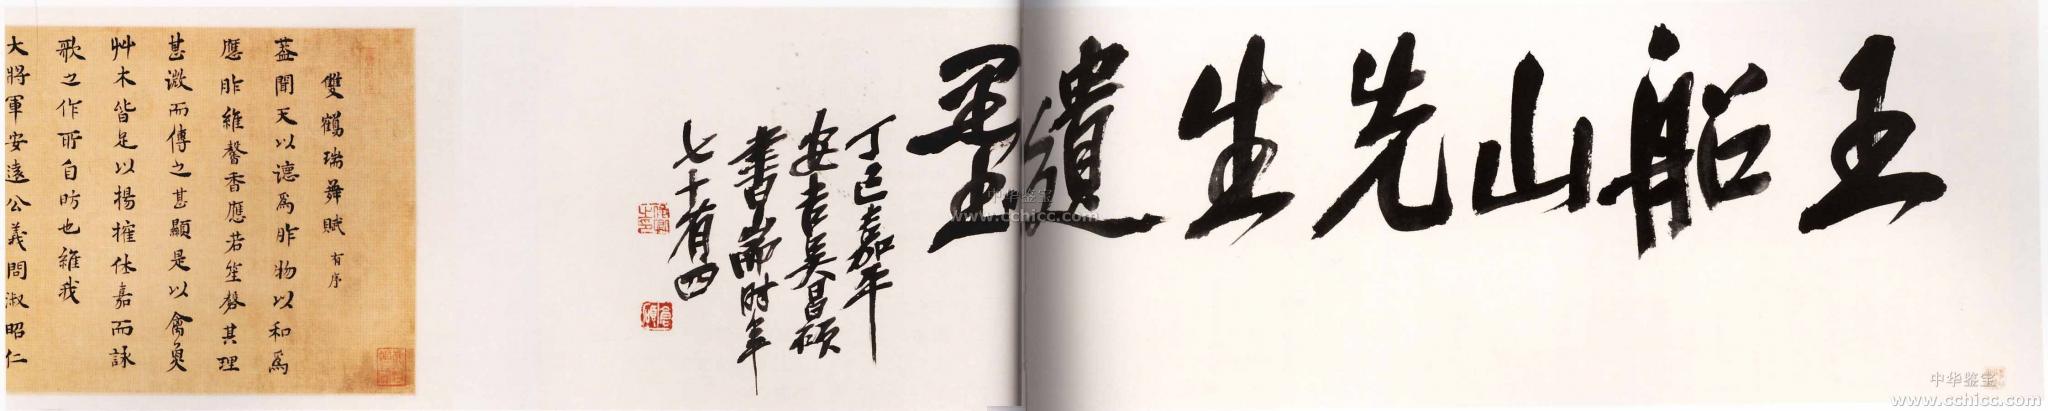 王船山先生遺墨
丁巳嘉平
安吉吳昌碩
書耑時年
七十有四
雙鶴瑞舞賦 有序
蓋聞天以德爲胙物以和爲
應胙維馨香應若笙磬其理
甚微而傳之甚顯是以禽魚
艸木皆足以揚搉休嘉而詠
歌之作所自昉也維我
大將軍安遠公義問淑昭仁
中华鉴宝
www.cchicc.com
中华鉴宝
www.cchicc.com